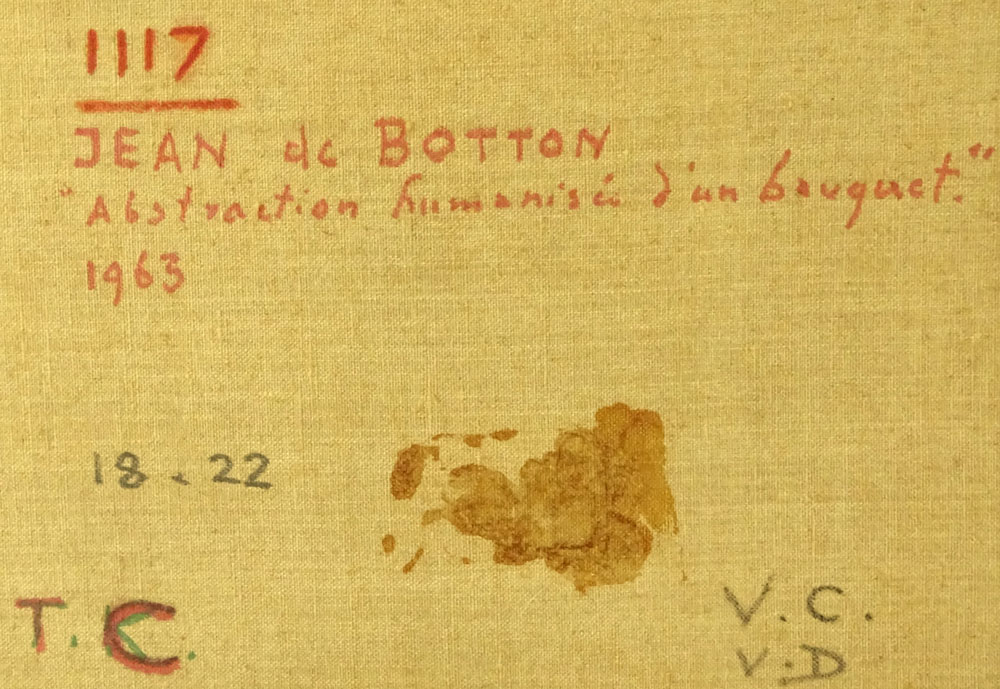 1117
JEAN de BOTTON
"Abstraction humanisée d'un bouquet."
1963
18.22
T.C.
V.C.
V.D